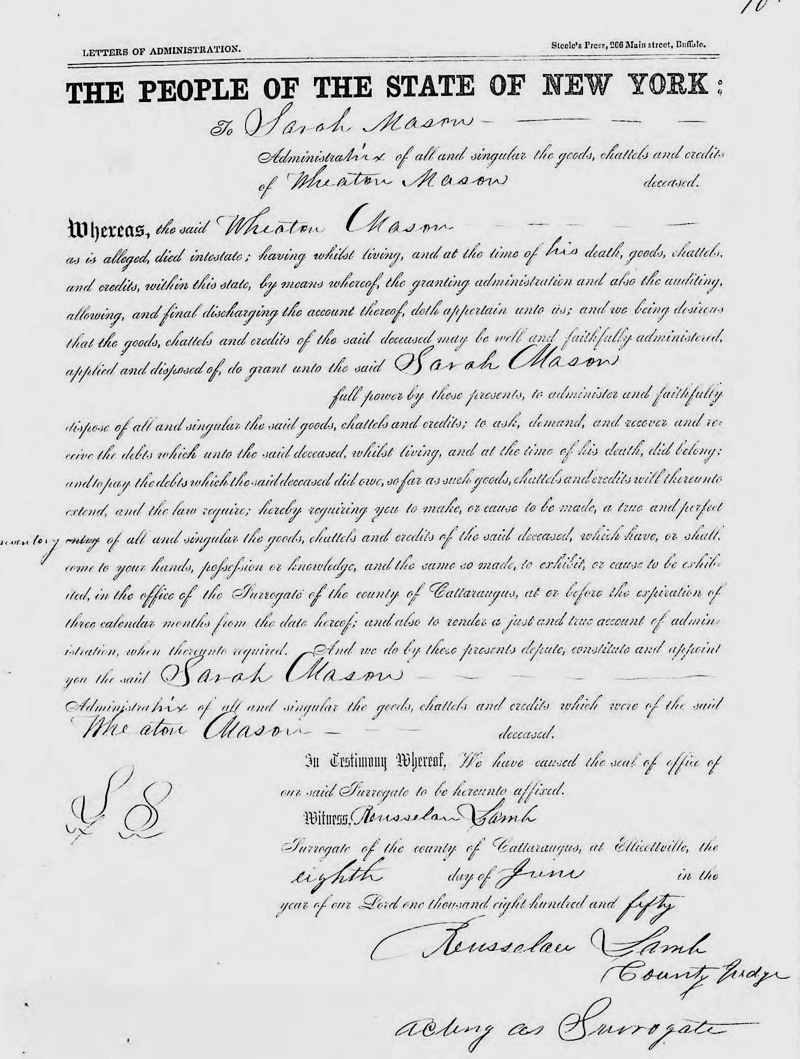 10
LETTERS OF ADMINISTRATION. Steele's Press, 206 Main street, Buffalo.
THE PEOPLE OF THE STATE OF NEW YORK:
To Sarah Mason
Administratrix of all and singular the goods, chattels and credits
of Wheaton Mason deceased.
Whereas, the said Wheaton Mason
as is alleged, died intestate; having whilst living, and at the time of his death, goods, chattels,
and credits, within this state, by means whereof, the granting administration and also the auditing,
allowing, and final discharging the account thereof, doth appertain unto us; and we being desirous
that the goods, chattels and credits of the said deceased may be well and faithfully administered,
applied and disposed of, do grant unto the said Sarah Mason
full power by these presents, to administer and faithfully
dispose of all and singular the said goods, chattels and credits; to ask, demand, and recover and re-
ceive the debts which unto the said deceased, whilst living, and at the time of his death, did belong;
and to pay the debts which the said deceased did owe, so far as such goods, chattels and credits will thereunto
extend, and the law require; hereby requiring you to make, or cause to be made, a true and perfect
inventory of all and singular the goods, chattels and credits of the said deceased, which have, or shall
come to your hands, possession or knowledge, and the same so made, to exhibit, or cause to be exhib-
ited, in the office of the Surrogate of the county of Cattaraugus, at or before the expiration of
three calendar months from the date hereof; and also to render a just and true account of admin-
istration, when thereunto required. And we do by these presents depute, constitute and appoint
you the said Sarah Mason
Administratrix of all and singular the goods, chattels and credits which were of the said
Wheaton Mason deceased.
In Testimony Whereof, We have caused the seal of office of
our said Surrogate to be hereunto affixed.
L S
Witness, Rensselaer Lamb
Surrogate of the county of Cattaraugus, at Ellicottville, the
eighth day of June in the
year of our Lord one thousand eight hundred and fifty
Rensselaer Lamb
County Judge
acting as Surrogate